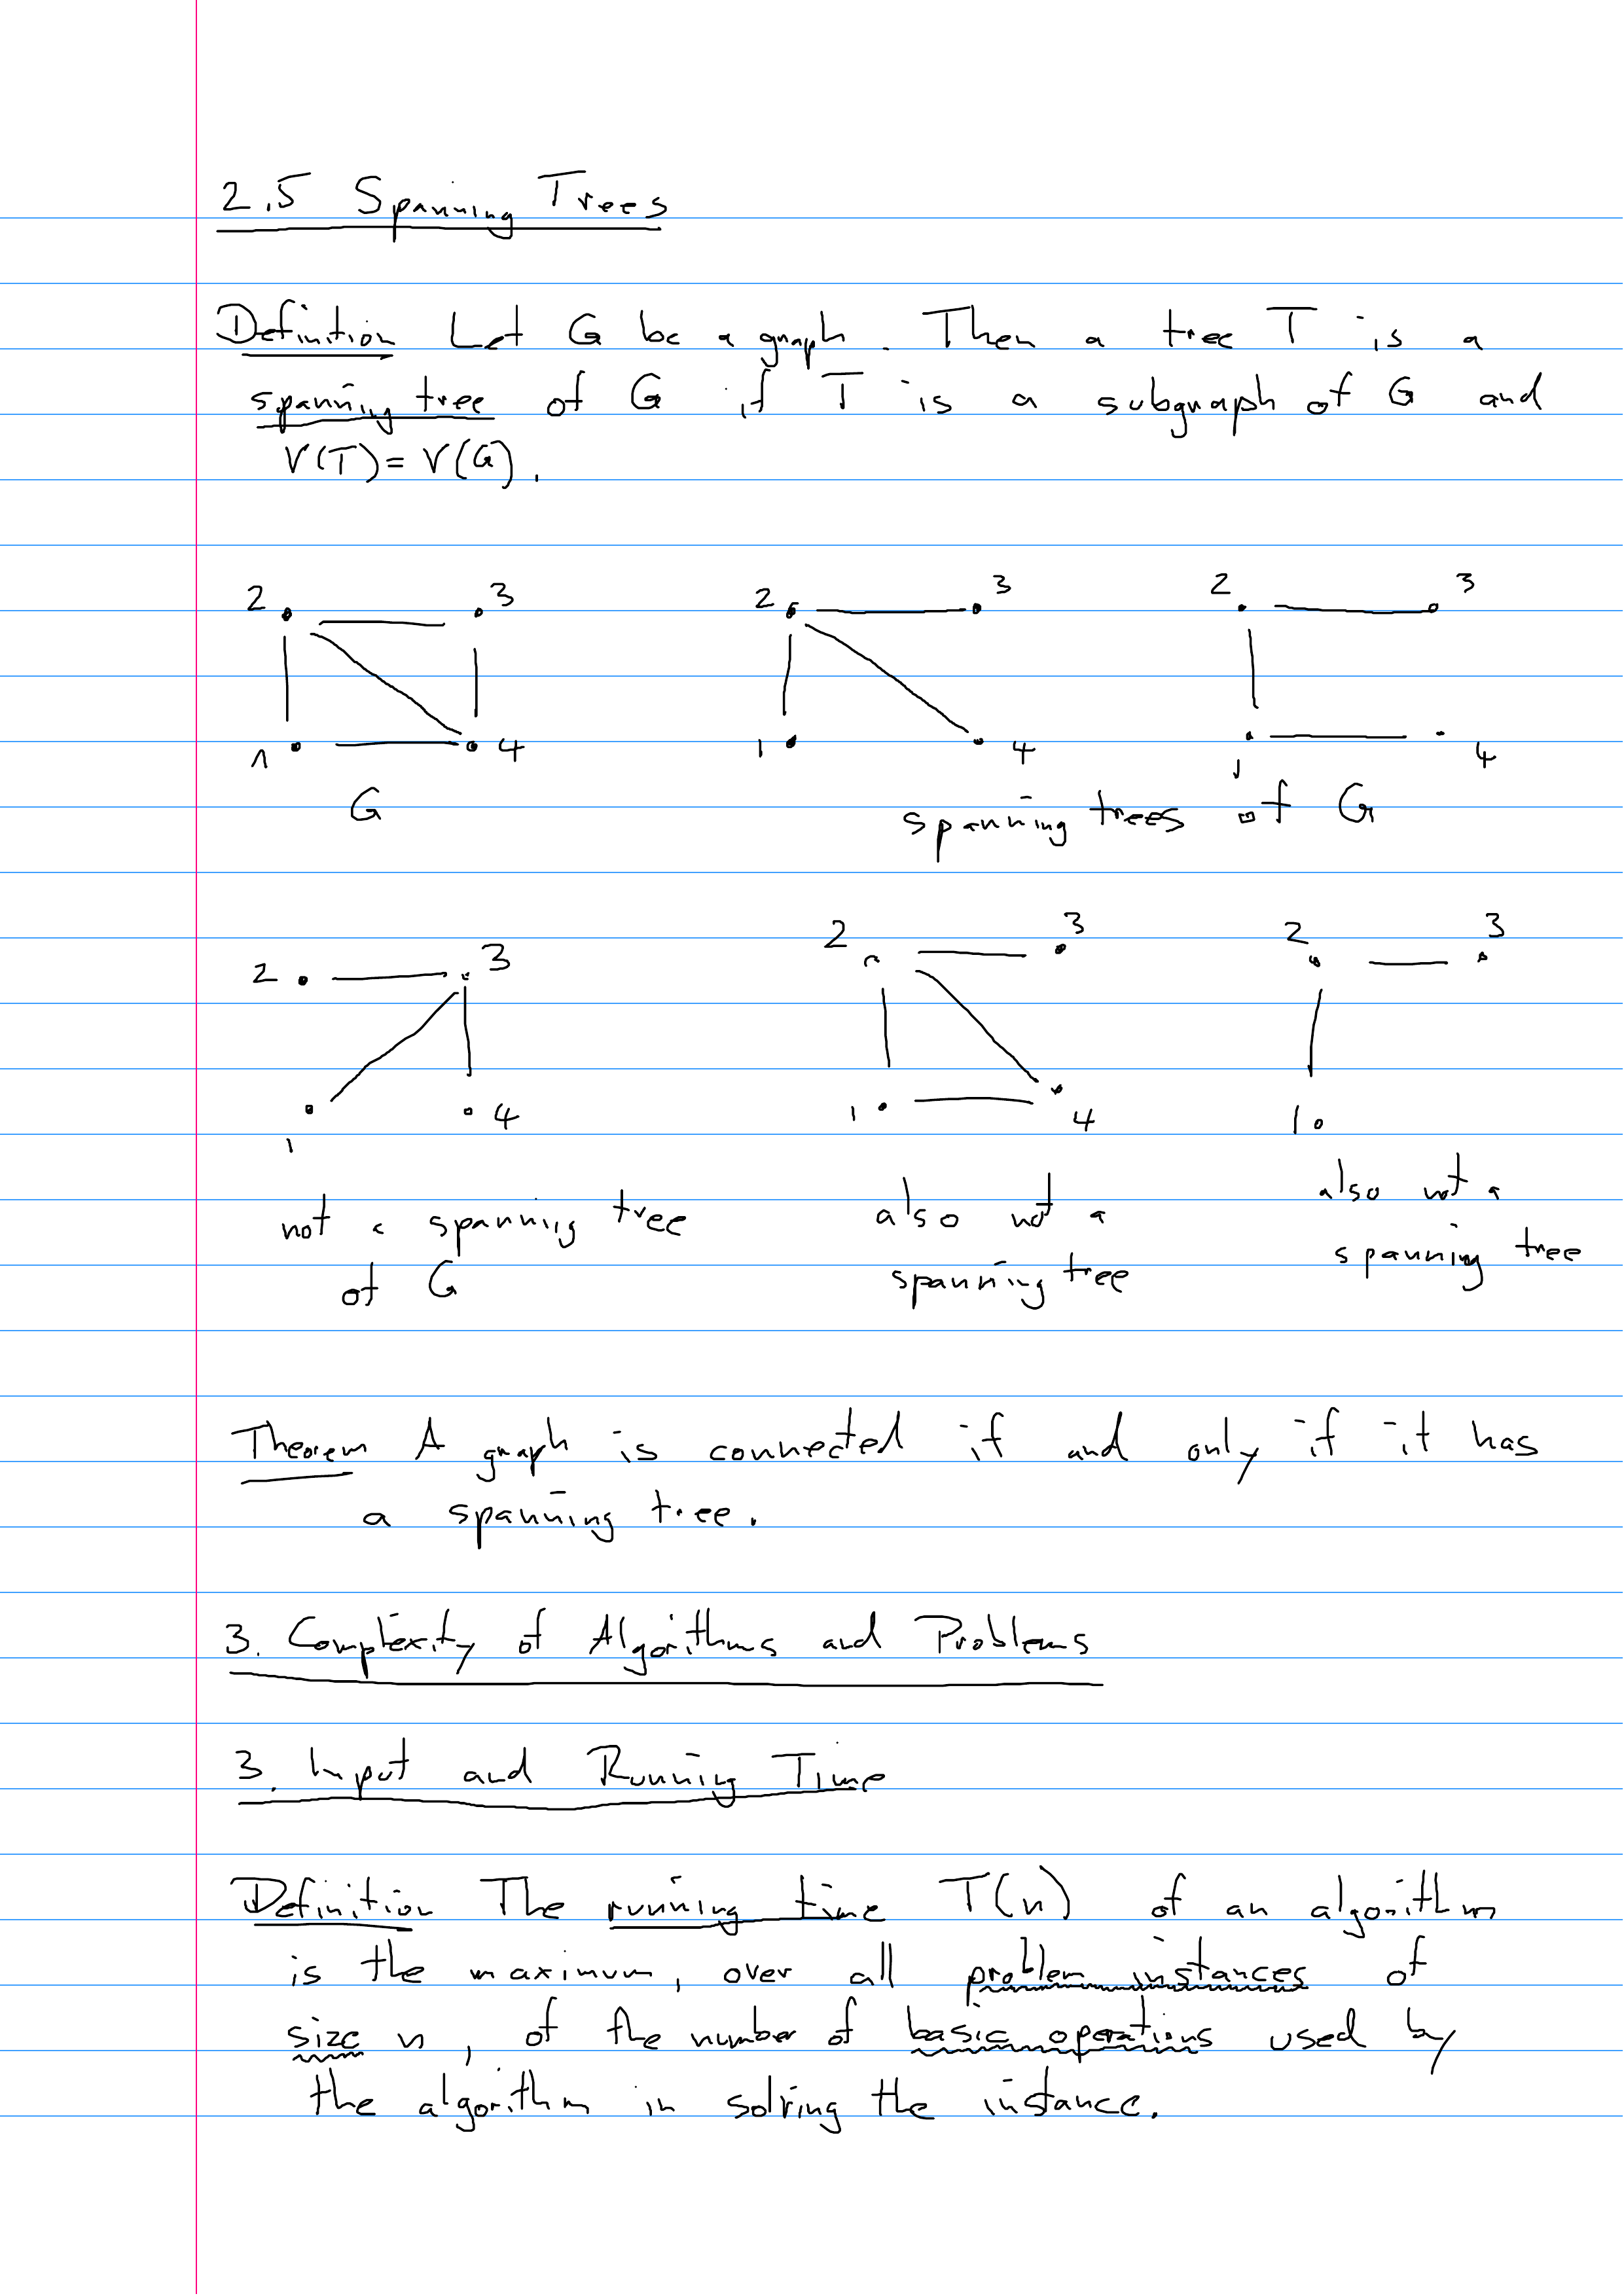 2.5 Spanning Trees
Definition Let G be a graph. Then a tree T is a
spanning tree of G if T is a subgraph of G and
V(T) = V(G).
2 3 2 3 2 3
1 4 1 4 1 4
G spanning trees of G
2 3 2 3 2 3
1 4 1 4 1
not a spanning tree also not a also not a
of G spanning tree spanning tree
Theorem A graph is connected if and only if it has
a spanning tree.
3. Complexity of Algorithms and Problems
3. Input and Running Time
Definition The running time T(n) of an algorithm
is the maximum, over all problem instances of
size n, of the number of basic operations used by
the algorithm in solving the instance.